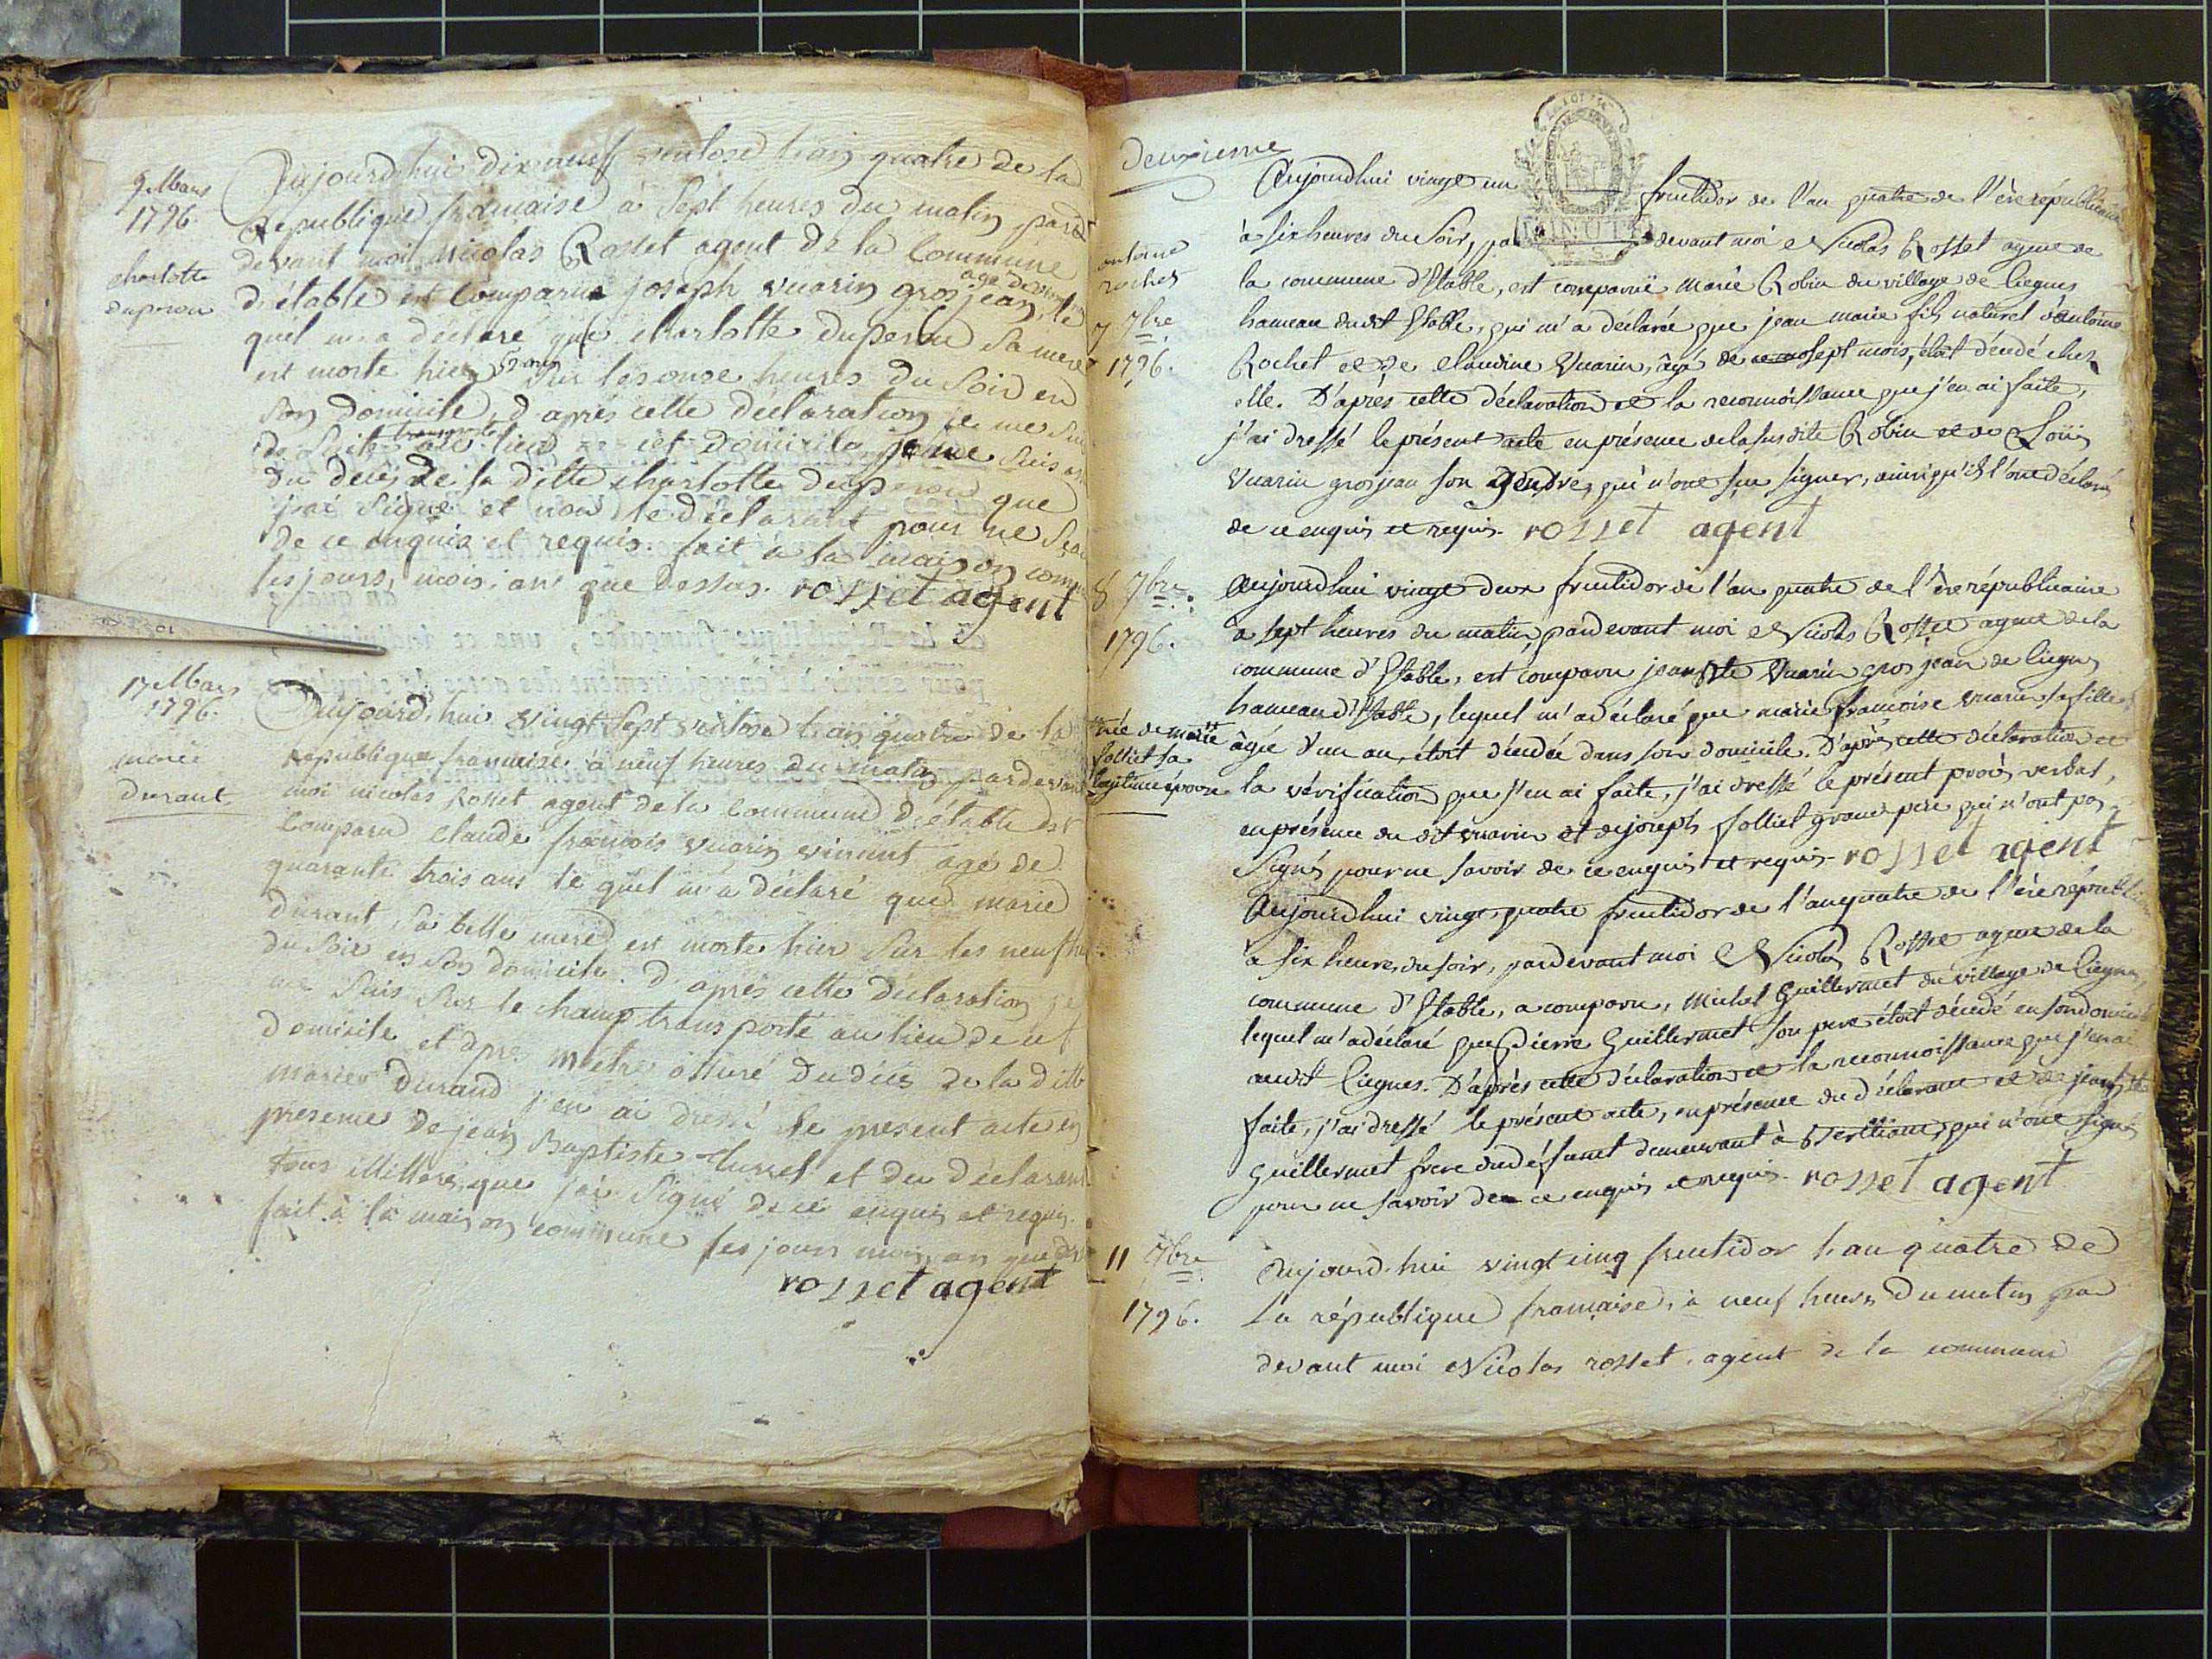 9 Mars
1796.
charlotte
duperou
Aujourd'hui dix neuf ventose l'an quatre de la
Republique francaise à Sept heures du matin par
devant moi nicolas Rosset agent de la Commune
d'étable est Comparue joseph vuarin grosjean, le
agé de
quel m'a declaré que charlotte duperou Sa mere
est morte hier Sur les onse heures du Soir en
Son domicile, d'après cette déclaration je me Suis
de Suite transporté au lieu cet domicile, je me Suis
du decès de la ditte charlotte duperou que
j'ai Signé et non le declarant pour ne
de ce enquis et requis. fait à la maison
les jours, mois, an que dessus. rosset agent
17 Mars
1796.
marie
durant
Aujourd'hui vingt Sept ventose l'an quatre de la
republique francaise à neuf heures du matin pardevant
moi nicolas Rosset agent de la Commune d'étable est
Comparu Claude francois vuarin vincent agé de
quarante trois ans le quel m'a déclaré que marie
durant, sa belle mere est morte hier Sur les neuf
du Soir en Son domicile. d'après cette declaration je
me Suis Sur le champ transporté au lieu de
domicile et après m'etre assuré du décès de la ditte
marie durand j'en ai dressé le present acte en
presence de jean Baptiste et du déclarant
tous illittéré, que j'ai Signé de ce enquis et requis.
fait à la maison commune les jours mois, an que
rosset agent
Deuxieme
antoine
rochet
7 7bre
1796.
Aujourdhui vingt un fructidor de l'an quatre de l'ère républicaine
à six heures du Soir, par devant moi Nicolas Rosset agent de
la commune d'Etable, est comparuë Marie Robin du village de Liegnes
hameau dudit Etable, qui m'a déclarée que jean marie fils naturel d'Antoine
Rochet et de Claudine Vuarin, âgé de sept mois, était décédé chez
elle. D'après cette déclaration et la reconnoissance que j'en ai faite,
j'ai dressé le présent acte en présence de la susdite Robin et de Loüis
Vuarin grosjean son gendre, qui n'ont su signer, ainsi qu'ils l'ont déclaré
de ce enquis et requis. rosset agent
8 7bre
1796.
Aujourdhui vingt deux fructidor de l'an quatre de l'ère républicaine
à sept heures du matin, pardevant moi Nicolas Rosset agent de la
commune d'Etable, est comparu jean Bte Vuarin gros jean de Liegnes
hameau d'Etable, lequel m'a déclaré que marie francoise vuarin sa fille,
née de marie
folliet sa
legitime épouse
âgée d'un an, étoit décédée dans son domicile. D'après cette déclaration et
la vérification que j'en ai faite, j'ai dressé le présent procès verbal,
en présence du dit vuarin et de joseph folliet grand pere qui n'ont pas
signés pour ne savoir de ce enquis et requis. rosset agent
Aujourdhui vingt quatre fructidor de l'an quatre de l'ère
à six heures du soir, pardevant moi Nicolas Rosset agent de la
commune d'Etable, a comparu, Michel Guillermet du village de Liegnes,
lequel m'a déclaré que Pierre Guillermet son pere étoit décédé en son domicile
audit Liegnes. D'après cette déclaration et la reconnoissance que j'en ai
faite, j'ai dressé le présent acte, en présence du déclarant et de jean
Guillermet frere du défunct demeurant à qui n'ont signés
pour ne savoir de ce enquis et requis. rosset agent
11 7bre
1796.
Aujourd'hui vingt cinq fructidor l'an quatre de
la république francaise, à neuf heures du matin par
devant moi Nicolas rosset, agent de la commune